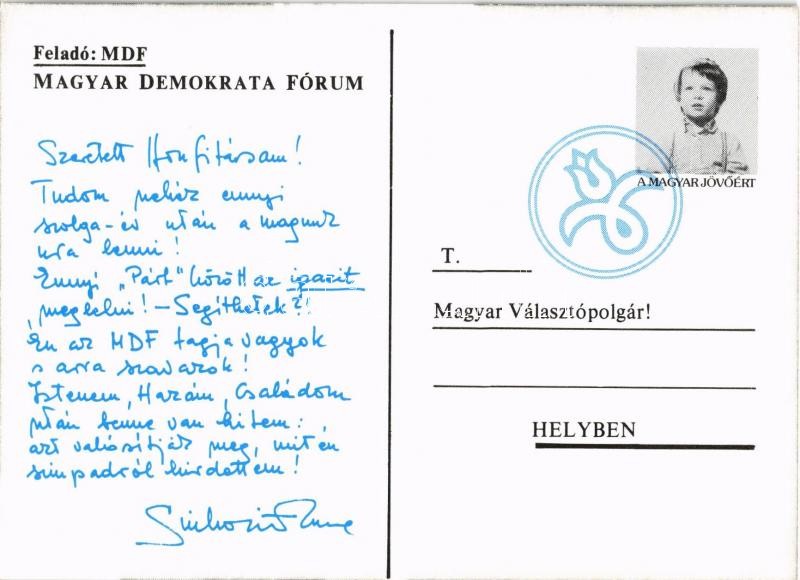 Feladó: MDF
MAGYAR DEMOKRATA FÓRUM
Szeretett Honfitársam!
Tudom nehéz ennyi
szolga-év után a magunk
ura lenni!
Ennyi „Párt” között az igazit
meglelni! – Segíthetek?!
Én az MDF tagja vagyok
s arra szavazok!
Istenem, Hazám, Családom
után benne van hitem:
azt valósítják meg, mit én
színpadról hirdettem!
Sinkovits Imre
A MAGYAR JÖVŐÉRT
T.
Magyar Választópolgár!
HELYBEN